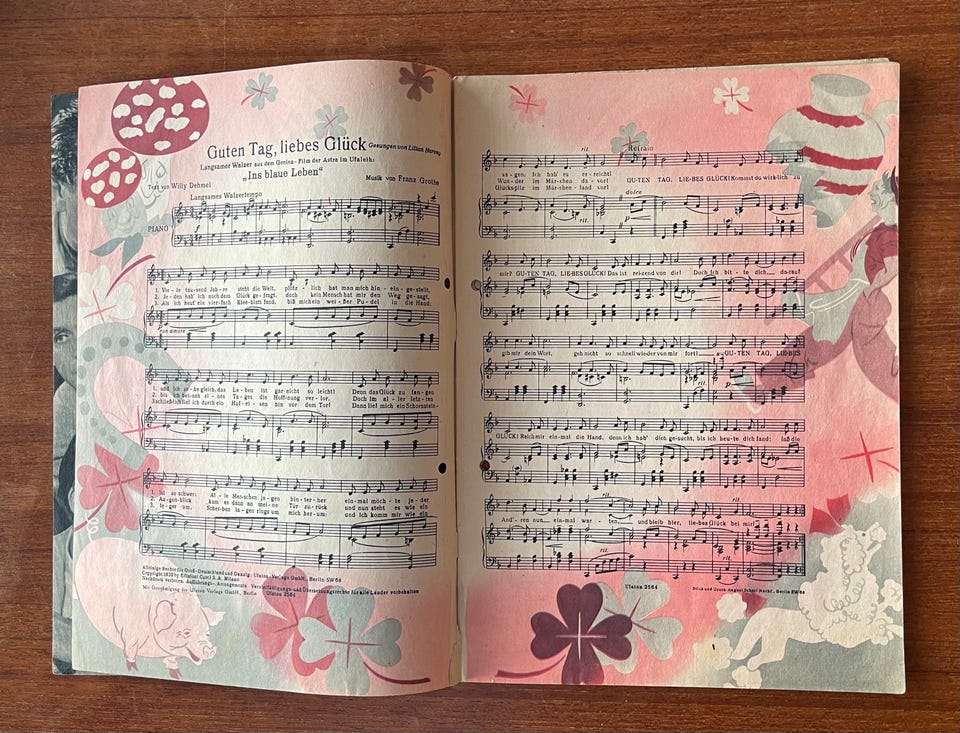 Guten Tag, liebes Glück
Gesungen von Lilian Harvey
Langsamer Walzer aus dem Genina-Film der Astra im Ufaleih:
„Ins blaue Leben“
Text von Willy Dehmel
Musik von Franz Grothe
Langsames Walzertempo
PIANO
1. Vie-le tau-send Jah-re steht die Welt, plötz-lich hat man mich hin-ein-ge-stellt,
2. Je-den hab' ich nach dem Glück ge-fragt, doch kein Mensch hat mir den Weg ge-sagt,
3. Als ich heut' ein vier-fach Klee-blatt fand, biß mich ein wei-ßer Pu-del in die Hand;
con amore
1. und ich se-he gleich, das Le-ben ist gar nicht so leicht! Denn das Glück zu fan-gen
2. bis ich bei-nah ei-nes Ta-ges die Hoff-nung ver-lor. Doch im al-ler-letz-ten
3. schließlich lief ich durch ein Huf-ei-sen hin vor dem Tor! Dann lief mich ein Schornstein-
1. ist so schwer: Al-le Men-schen ja-gen hin-ter-her ein-mal möch-te je-der
2. Au-gen-blick kam es dann an mei-ne Tür zu-rück und nun steht es wie ein
3. fe-ger um, Scher-ben la-gen rings um mich her-um: und ich komm mir wie ein
Alleinige Rechte für Groß-Deutschland und Danzig: Ufaton-Verlags GmbH., Berlin SW 68
Copyright 1939 by Edizioni Curci S. A. Milano
Nachdruck verboten. Aufführungs-, Arrangements-, Vervielfältigungs- und Übersetzungsrechte für alle Länder vorbehalten
Mit Genehmigung der Ufaton Verlags GmbH., Berlin
Ufaton 2564
rit.
Refrain
sa-gen: Ich hab' es er-reicht!
Wun-der im Mär-chen da-vor! GU-TEN TAG, LIE-BES GLÜCK! Kommst du wirk-lich zu
Glückspilz im Mär-chen-land vor!
dolce
rit.
mir? GU-TEN TAG, LIE-BES GLÜCK! Das ist rei-zend von dir! Doch ich bit-te dich darauf
gib mir dein Wort, geh nicht so schnell wieder von mir fort! GU-TEN TAG, LIE-BES
rit.
p
GLÜCK! Reich mir ein-mal die Hand, denn ich hab' dich ge-sucht, bis ich heu-te dich fand; laß die
rit.
And'-ren nun ein-mal war-ten und bleib hier, lie-bes Glück bei mir!
rit.
Ufaton 2564
Stich und Druck August Scherl Nachf., Berlin SW 68